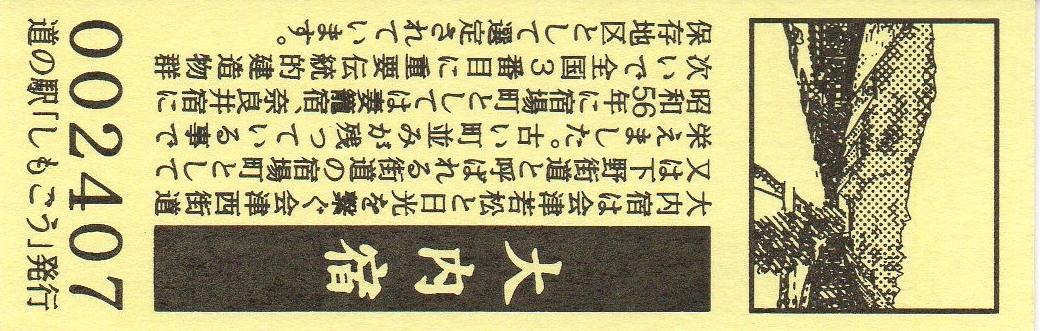 大内宿
大内宿は会津若松と日光を繋ぐ会津西街道
又は下野街道と呼ばれる街道の宿場町として
栄えました。古い町並みが残っている事で
昭和56年に宿場町としては妻籠宿、奈良井宿に
次いで全国3番目に重要伝統的建造物群
保存地区として選定されています。
002407
道の駅「しもごう」発行